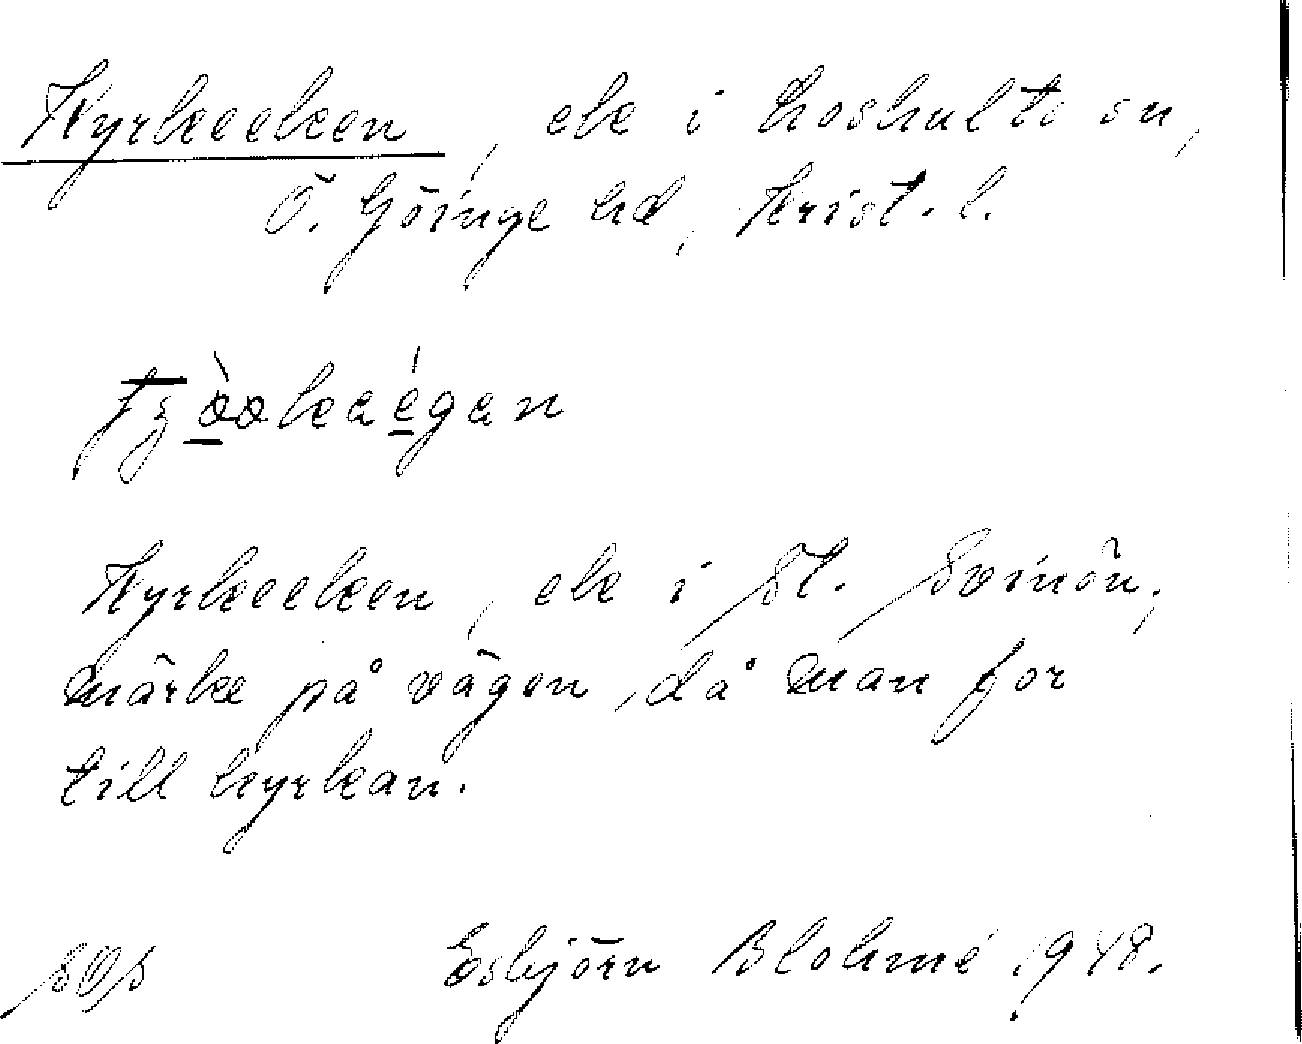 Kyrkeeken, ek i Loshults sn,
Ö. Göinge hd, Krist. l.
Kyrkeeken, ek i St. Svinön,
märke på vägen, då man for
till kyrkan.
SOS Esbjörn Blohmé 1948.